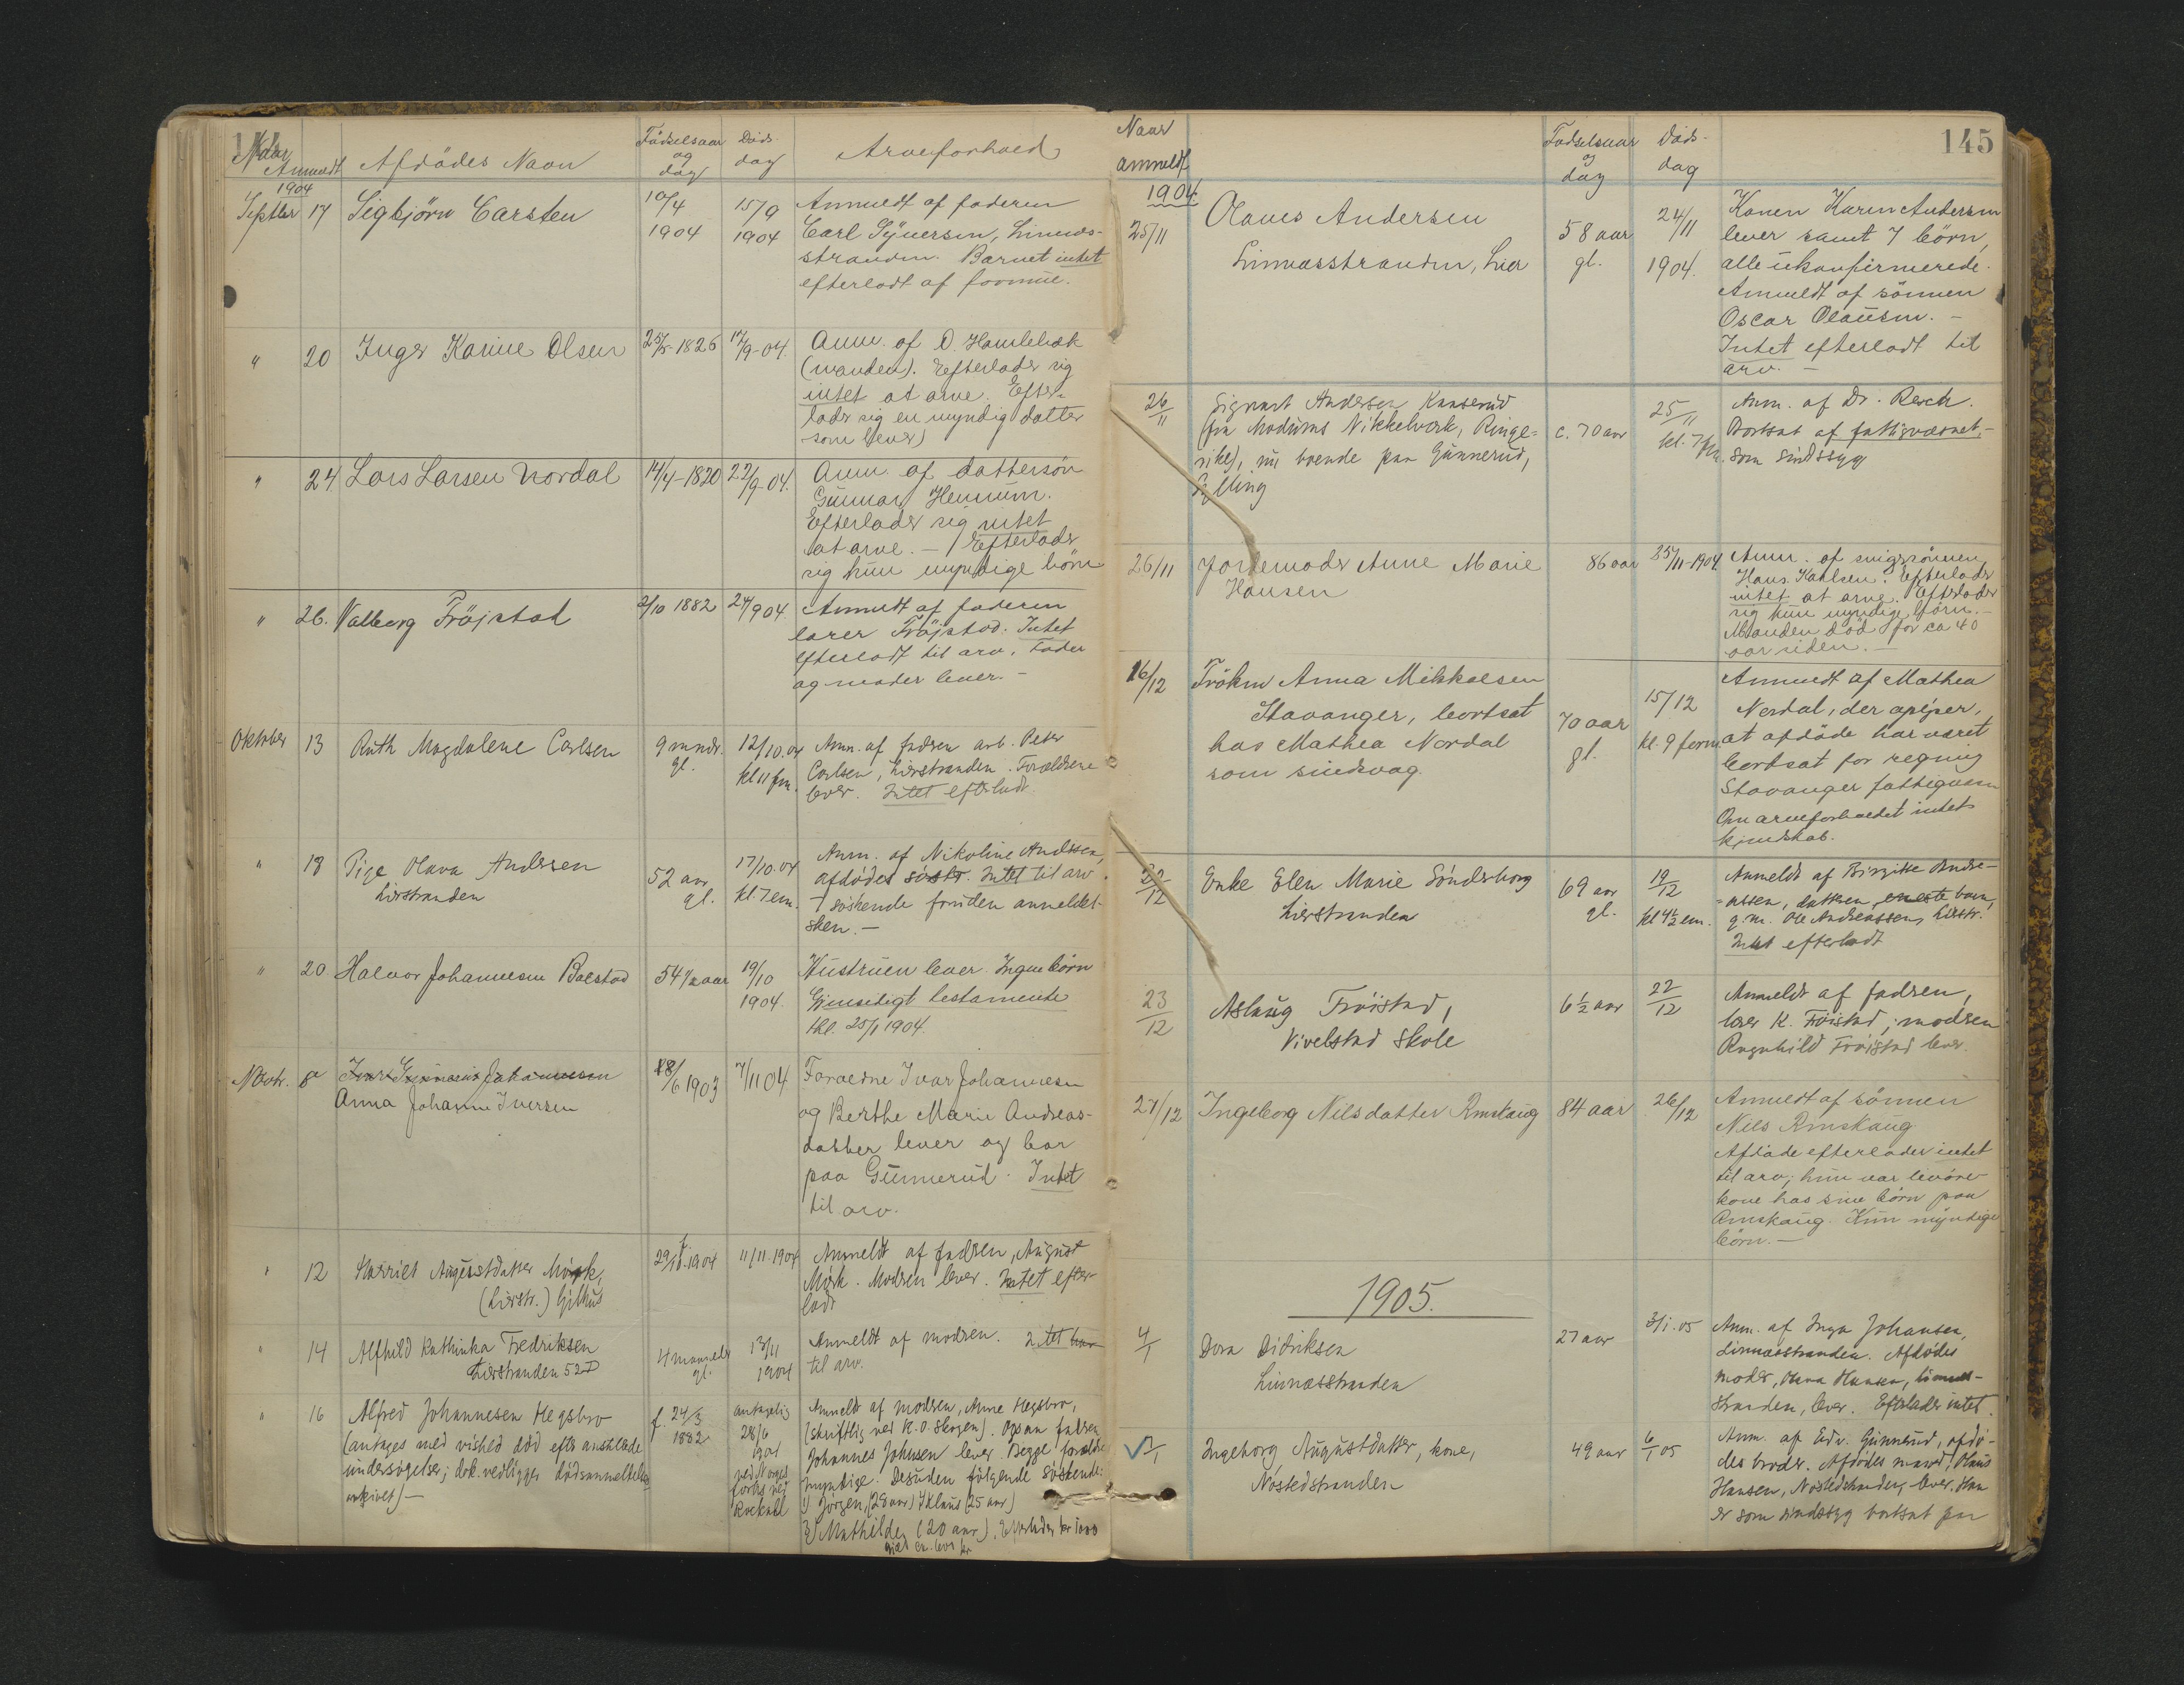 144
Naar
Anmeldt
Afdödes Navn
Födselsaar
og
dag
Döds
dag
Arveforhold
1904
Septber 17 Sigbjörn Carsten
10/4
1904
15/9
1904
Anmeldt af faderen
Carl Syversen, Linnes-
stranden. Barnet intet
efterladt af formue.
" 20 Inger Karine Olsen 25/5-1826 17/9-04.
Anm. af O. Hamlebæk
(manden). Efterlader sig
intet at arve. Efter-
lader sig en myndig datter
som lever)
" 24 Lars Larsen Nordal 14/4-1820 22/9-04.
Anm. af dattersön
Gunnar Hennum.
Efterlader sig intet
at arve. — Efterlader
sig kun myndige börn
" 26. Valborg Fröjstad 2/10 1882 24/9 04.
Anmeldt af faderen
lærer Fröjstad. Intet
efterladt til arv. Fader
og moder lever. —
Oktober 13 Ruth Magdalene Carlsen
9 mndr.
gl.
12/10.04
kl 11 fm.
Anm. af fadren arb. Peter
Carlsen, Lierstranden. Forældrene
lever. Intet efterladt.
" 18 Pige Olava Andersen
Lierstranden
52 aar
gl.
17/10.04
kl. 7 em.
Anm. af Nikoline Andersen,
afdödes söster. Intet til arv.
7 söskende foruden anmeldel-
sken. —
" 20 Halvor Johannesen Bolstad 54 1/2 aar
19/10
1904.
Hustruen lever. Ingen börn
Gjensidigt testamente
thl. 25/1 1904.
Novbr. 8 Ivar Johannesen
Anna Johanne Iversen
18/6 1903
7/11 04
Foraeldrene Ivar Johannesen
og Berthe Marie Andreas-
datter lever og bor
paa Gunnerud. Intet
til arv.
" 12 Harriet Augustdatter Mörk,
(Lierstr.) Gilhus
29/10.1904 11/11.1904
Anmeldt af fadren, August
Mörk. Modren lever. Intet efter-
ladt
" 14 Alfhild Kathinka Fredriksen
Lierstranden 52 D
4 maaneder
gl.
13/11
1904
Anmeldt af modren. Intet
til arv.
" 16 Alfred Johannesen Hegsbro
(antages med vished död efter anstillede
undersögelser; dok. vedligger dödsanmeldelse
arkivet) —
f. 24/3
1882
antagelig
28/6
1904
ved Norges
forlis ved
Rockall
Anmeldt af modren, Anne Hegsbro,
(skriftlig ved K. O. Skogen). Ogsaa fadren
Johannes Johnsen lever. Begge forældre
myndige. Desuden fölgende söskende:
1) Jörgen, (28 aar) 2 Klaus (25 aar)
3) Mathilde, (20 aar). Efterlader kr 1000
145
Naar
anmeldt
Födselsaar
og
dag
Döds-
dag
1904
25/11
Olaves Andersen
Linnæsstranden, Lier
58 aar
gl.
24/11
1904.
Konen Karen Andersen
lever samt 7 börn,
alle ukonfirmerede.
Anmeldt af sönnen
Oscar Olausen. —
Intet efterladt til
arv. —
26/11
Sigvart Andersen Knaserud
(fra Modums Nikkelverk, Ringe-
rike), nu boende paa Gunnerud,
Sylling
c. 70 aar
25/11
kl. 7 fm.
Anm. af Dr. Resch.
Bortsat af fattigvæsnet,-
som sindssyg
26/11 Jordemoder Anne Marie
Hansen
86 aar 25/11-1904
Anm. af svigersönnen
Hans Karlsen. Efterlader
intet at arve. Efterlader
sig kun myndige börn. —
Manden död for ca 40
aar siden. —
16/12 Fröken Anna Mikkelsen
Stavanger, bortsat
hos Mathea Nordal
som sindsvag.
70 aar
gl.
15/12
kl. 9 form.
Anmeldt af Mathea
Nordal, der opgiver,
at afdöde har været
bortsat for regning
Stavanger fattigvæsen
Om arveforholdet intet
kjendskab.
22/12
Enke Elen Marie Sönderborg
Lierstranden
69 aar
gl.
19/12
kl 4 1/2 em.
Anmeldt af Birgitte Andre-
assen, datteren, eneste barn,
g. m. Ole Andreassen, Lierstr.
Intet efterladt
23/12
Aslaug Fröistad,
Vivelstad skole
6 1/2 aar
22/12
Anmeldt af fadren,
lærer K. Fröistad; modren
Ragnhild Fröistad lever.
27/12 Ingeborg Nilsdatter Renskaug 84 aar 26/12
Anmeldt af sönnen
Nils Renskaug
Afdöde efterlader intet
til arv; hun var livöre-
kone hos sine börn paa
Renskaug. Kun myndige
börn. —
1905.
4/1
Dora Didriksen
Linnæsstranden
27 aar
3/1.05
Anm. af Inga Johansen,
Linnæsstranden. Afdödes
moder, Olava Hansen, Linnæs-
stranden, lever. Efterlader intet.
7/1
Ingeborg Augustdatter, kone,
Nöstedstranden
49 aar
6/1 05
Anm. af Edv. Gunnerud, afdö-
des broder. Afdödes mand, Hans
Hansen, Nöstedstranden, lever. Han
er som sindssyg bortsat paa